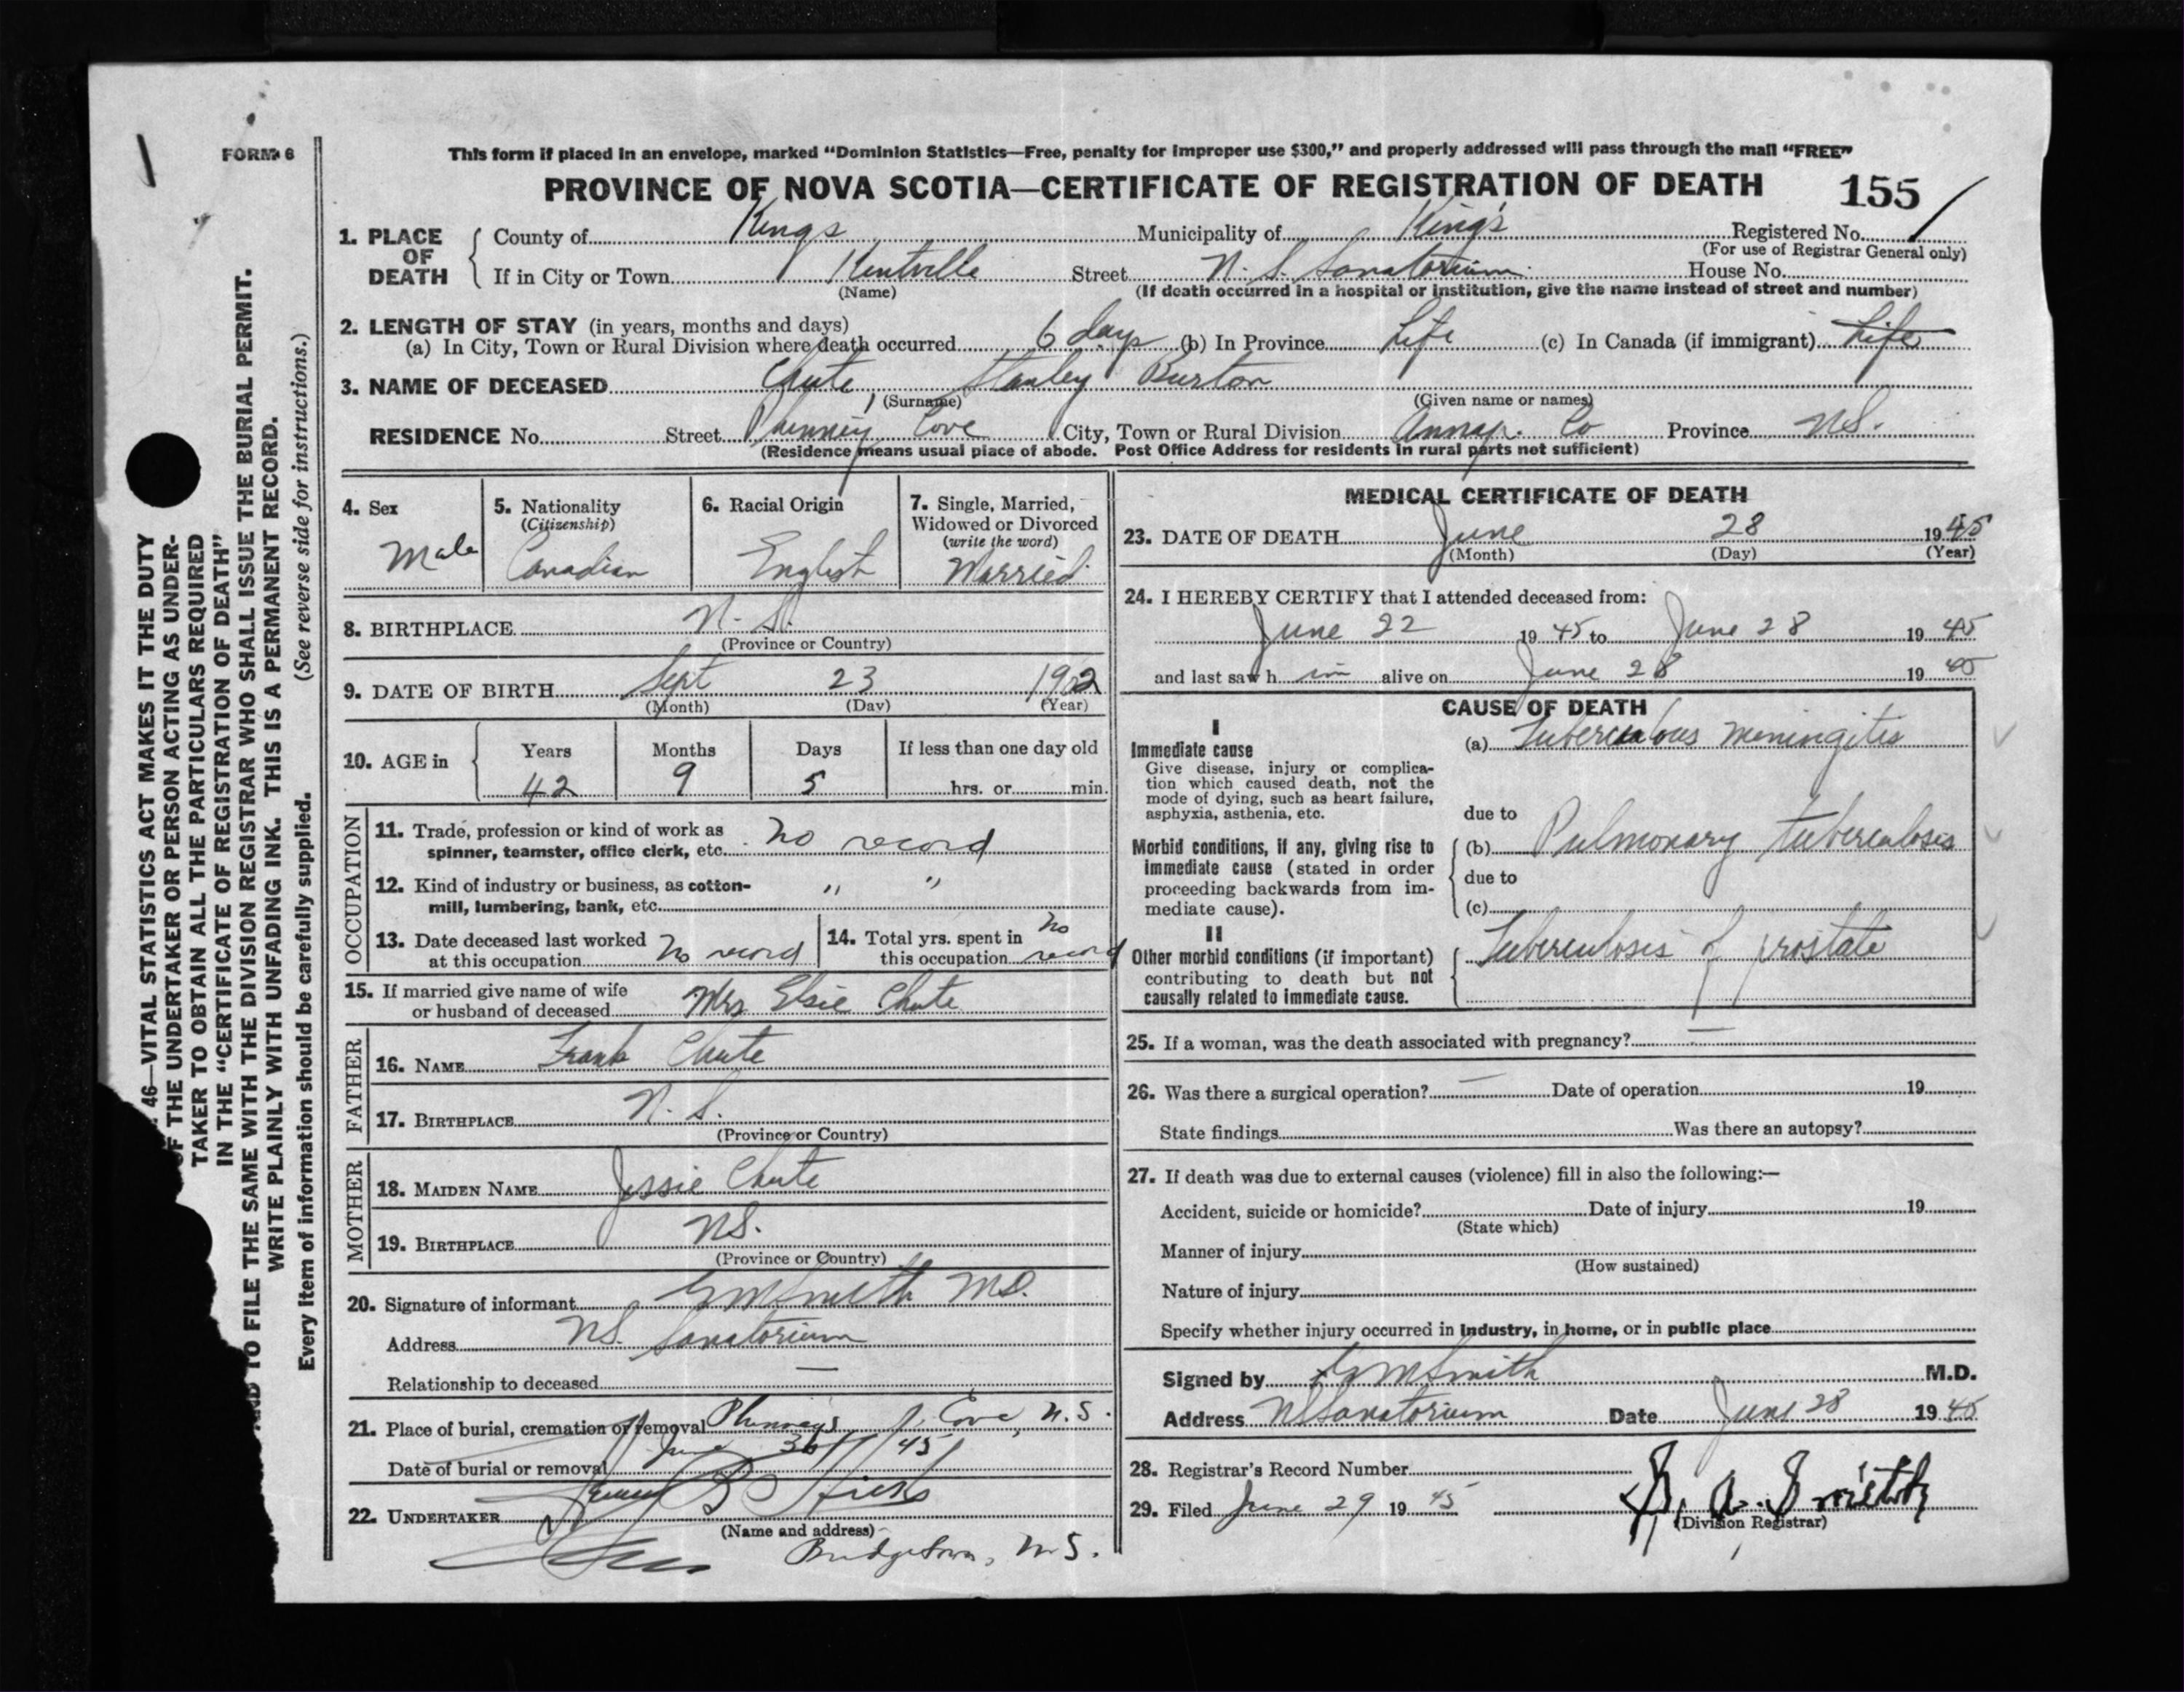 FORM 6
This form if placed in an envelope, marked “Dominion Statistics—Free, penalty for improper use $300,” and properly addressed will pass through the mail “FREE”
PROVINCE OF NOVA SCOTIA—CERTIFICATE OF REGISTRATION OF DEATH 155
1. PLACE OF DEATH
County of Kings Municipality of Kings Registered No.
(For use of Registrar General only)
If in City or Town Kentville Street N. S. Sanatorium House No.
(Name) (If death occurred in a hospital or institution, give the name instead of street and number)
2. LENGTH OF STAY (in years, months and days)
(a) In City, Town or Rural Division where death occurred 6 days (b) In Province Life (c) In Canada (if immigrant) Life
3. NAME OF DECEASED Chute, Stanley Burton
(Surname) (Given name or names)
RESIDENCE No. Street Phinney Cove City, Town or Rural Division Annap. Co Province N.S.
(Residence means usual place of abode. Post Office Address for residents in rural parts not sufficient)
4. Sex
Male
5. Nationality
(Citizenship)
Canadian
6. Racial Origin
English
7. Single, Married,
Widowed or Divorced
(write the word)
Married
8. BIRTHPLACE N. S.
(Province or Country)
9. DATE OF BIRTH Sept 23 1902
(Month) (Day) (Year)
10. AGE in
Years Months Days If less than one day old
42 9 5 hrs. or min.
OCCUPATION
11. Trade, profession or kind of work as
spinner, teamster, office clerk, etc. No record
12. Kind of industry or business, as cotton-
mill, lumbering, bank, etc. " "
13. Date deceased last worked
at this occupation No record
14. Total yrs. spent in No
this occupation record
15. If married give name of wife
or husband of deceased Mrs Elsie Chute
FATHER
16. NAME Frank Chute
17. BIRTHPLACE N. S.
(Province or Country)
MOTHER
18. MAIDEN NAME Jessie Chute
19. BIRTHPLACE N.S.
(Province or Country)
20. Signature of informant G M Smith M.D.
Address N.S. Sanatorium
Relationship to deceased —
21. Place of burial, cremation or removal Phinneys Cove, N.S.
Date of burial or removal June 30 / 45
22. UNDERTAKER Hicks
(Name and address)
Bridgetown, N.S.
MEDICAL CERTIFICATE OF DEATH
23. DATE OF DEATH June 28 1945
(Month) (Day) (Year)
24. I HEREBY CERTIFY that I attended deceased from:
June 22 19 45 to June 28 19 45
and last saw h im alive on June 28 19 45
CAUSE OF DEATH
I
Immediate cause
Give disease, injury or complica-
tion which caused death, not the
mode of dying, such as heart failure,
asphyxia, asthenia, etc.
(a) Tuberculous meningitis
due to
Morbid conditions, if any, giving rise to
immediate cause (stated in order
proceeding backwards from im-
mediate cause).
(b) Pulmonary tuberculosis
due to
(c)
II
Other morbid conditions (if important)
contributing to death but not
causally related to immediate cause.
Tuberculosis of prostate
25. If a woman, was the death associated with pregnancy? —
26. Was there a surgical operation? — Date of operation 19
State findings Was there an autopsy?
27. If death was due to external causes (violence) fill in also the following:—
Accident, suicide or homicide? Date of injury 19
(State which)
Manner of injury
(How sustained)
Nature of injury
Specify whether injury occurred in industry, in home, or in public place
Signed by G M Smith M.D.
Address N S Sanatorium Date June 28 19 45
28. Registrar's Record Number
29. Filed June 29 19 45
(Division Registrar)
46—VITAL STATISTICS ACT MAKES IT THE DUTY
OF THE UNDERTAKER OR PERSON ACTING AS UNDER-
TAKER TO OBTAIN ALL THE PARTICULARS REQUIRED
IN THE “CERTIFICATE OF REGISTRATION OF DEATH”
AND TO FILE THE SAME WITH THE DIVISION REGISTRAR WHO SHALL ISSUE THE BURIAL PERMIT.
WRITE PLAINLY WITH UNFADING INK. THIS IS A PERMANENT RECORD.
Every item of information should be carefully supplied. (See reverse side for instructions.)